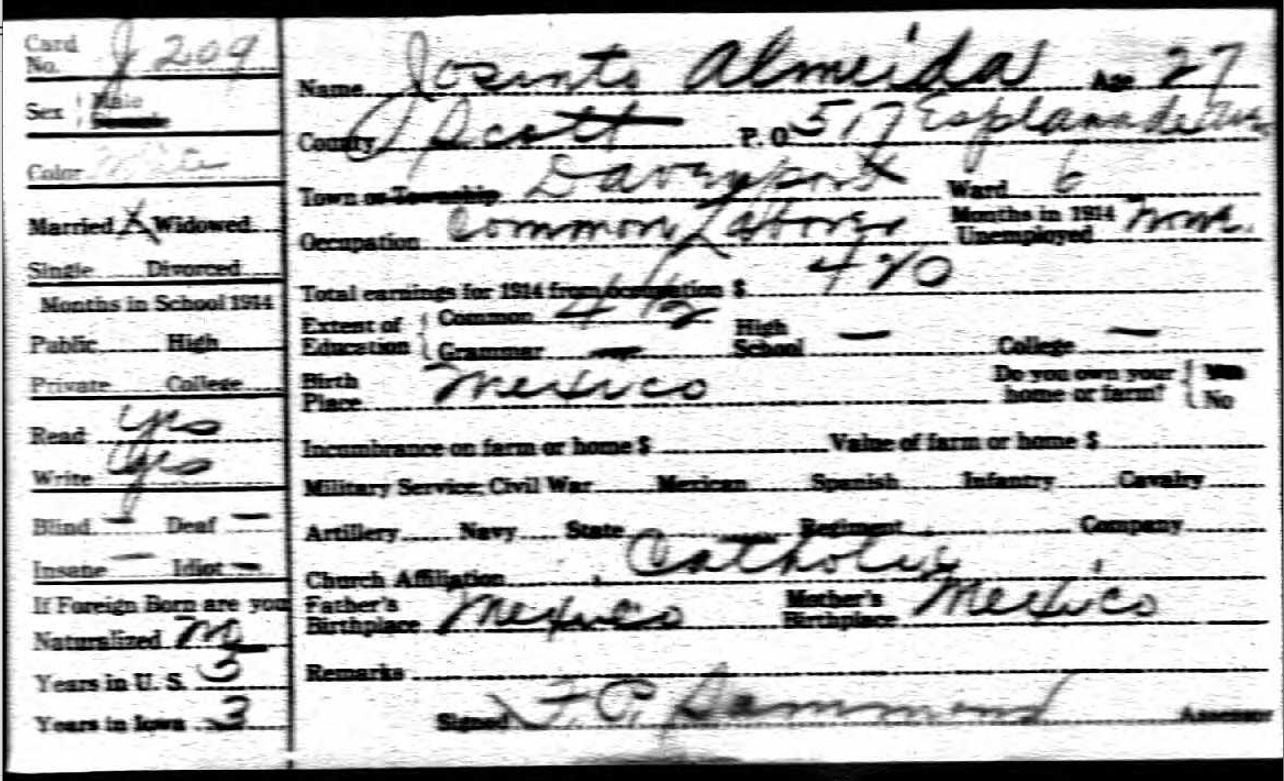 Card No. J 209
Sex Male Female
Color
Married X Widowed
Single Divorced
Months in School 1914
Public High
Private College
Read yes
Write yes
Blind — Deaf —
Insane — Idiot —
If Foreign Born are you
Naturalized no
Years in U. S.
Years in Iowa 3
Name Josinto Almeida Age 27
County Scott P. O. 517 Esplanade Av
Town or Township Davenport Ward 6
Occupation Common Laborer Months in 1914 Unemployed none
Total earnings for 1914 from occupation $ 420
Extent of Education Common 4 1/2 Grammar — High School — College —
Birth Place Mexico Do you own your home or farm? Yes No
Incumbrance on farm or home $ Value of farm or home $
Military Service: Civil War Mexican Spanish Infantry Cavalry
Artillery Navy State Regiment Company
Church Affiliation Catholic
Father's Birthplace Mexico Mother's Birthplace Mexico
Remarks
Signed F. P. Hammond Assessor